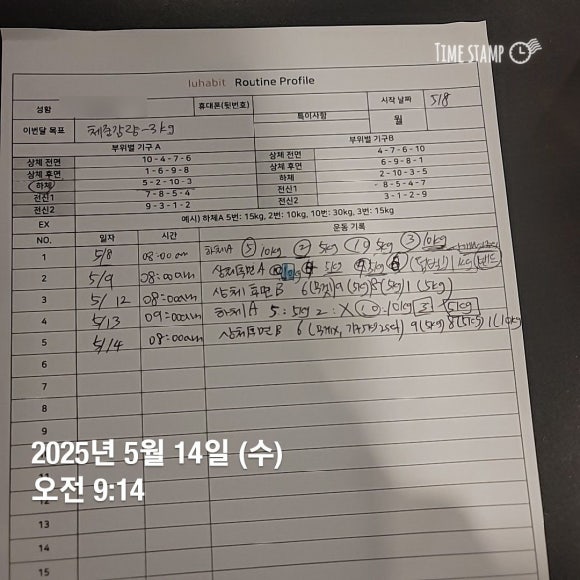 TIME STAMP
luhabit Routine Profile
성함 휴대폰(뒷번호) 특이사항 시작 날짜 5/8
이번달 목표 체중감량 -3kg 월
부위별 기구 A 부위별 기구B
상체 전면 10 - 4 - 7 - 6 상체 전면 4 - 7 - 6 - 10
상체 후면 1 - 6 - 9 - 8 상체 후면 6 - 9 - 8 - 1
하체 5 - 2 - 10 - 3 하체 2 - 10 - 3 - 5
전신1 7 - 8 - 5 - 4 전신1 8 - 5 - 4 - 7
전신2 9 - 3 - 1 - 2 전신2 3 - 1 - 2 - 9
EX 예시) 하체A 5번: 15kg, 2번: 10kg, 10번: 30kg, 3번: 15kg
NO. 일자 시간 운동 기록
1 5/8 08:00 am 하체A 5 10kg 2 5kg 10 5kg 3 10kg
2 5/9 08:00am 상체 A 5kg 5kg 6
3 5/12 08:00am 상체후면B 6 9(5kg) 8(5kg) 1(5kg)
4 5/13 09:00am 하체A 5: 5kg 2: X 10: 10kg 3 5kg
5 5/14 08:00am 상체후면B 6 9(5kg) 8(5kg) 1(10kg)
6
7
8
9
10
11
2025년 5월 14일 (수)
오전 9:14
12
13
14
15